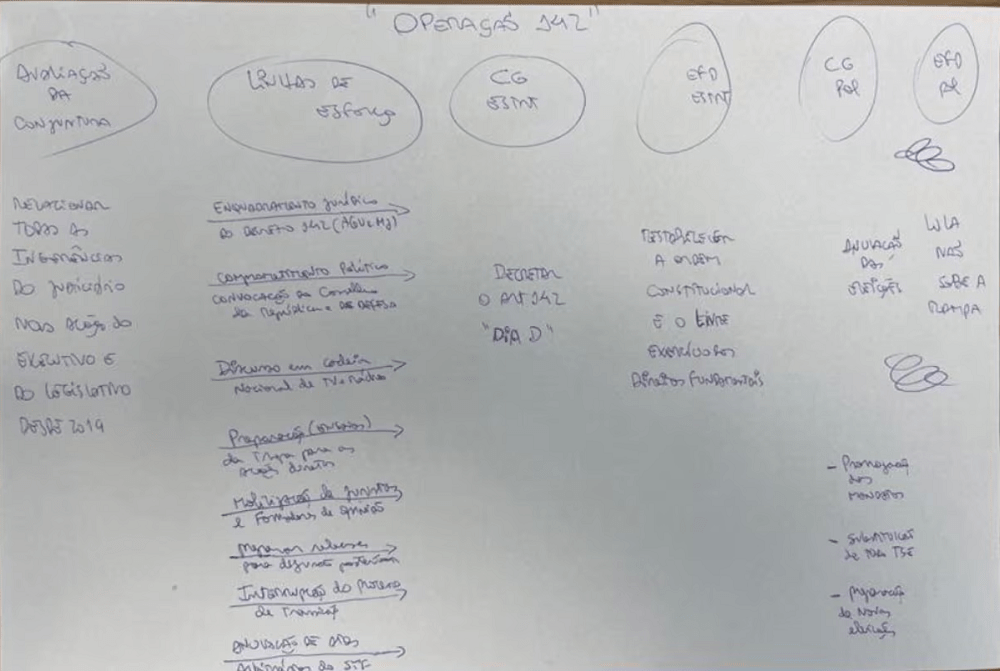 "OPERAÇÃO 142"
AVALIAÇÃO
DA
CONJUNTURA
LINHAS DE
ESFORÇO
CG
ESTNT
EFD
ESTNT
CG
POL
EFD
POL
RELACIONAR
TODAS AS
INGERÊNCIAS
DO JUDICIÁRIO
NAS AÇÃO DO
EXECUTIVO E
DO LEGISLATIVO
DESDE 2019
Enquadramento Jurídico
do Decreto 142 (AGU e MJ)
Comprometimento Político
CONVOCAÇÃO do Conselho
da República e DE DEFESA
Discurso em cadeia
Nacional de TV e Rádio
Preparação (ENSAIOS)
da Tropa para as
ações diretas
Mobilização de juristas
e Formadores de opinião
Preparar releases
para
Interrupção do Processo
de Transição
ANULAÇÃO DE ATOS
Arbitrários do STF
DECRETAR
O ART 142
"DIA D"
RESTABELECER
A ORDEM
CONSTITUCIONAL
E O LIVRE
EXERCÍCIO DOS
Direitos FUNDAMENTAIS
ANULAÇÃO
DAS
ELEIÇÕES
- Prorrogação
dos
MANDATOS
- SUBSTITUIÇÃO
de todo TSE
- Preparação
de Novas
eleições
LULA
NÃO
SOBE A
RAMPA